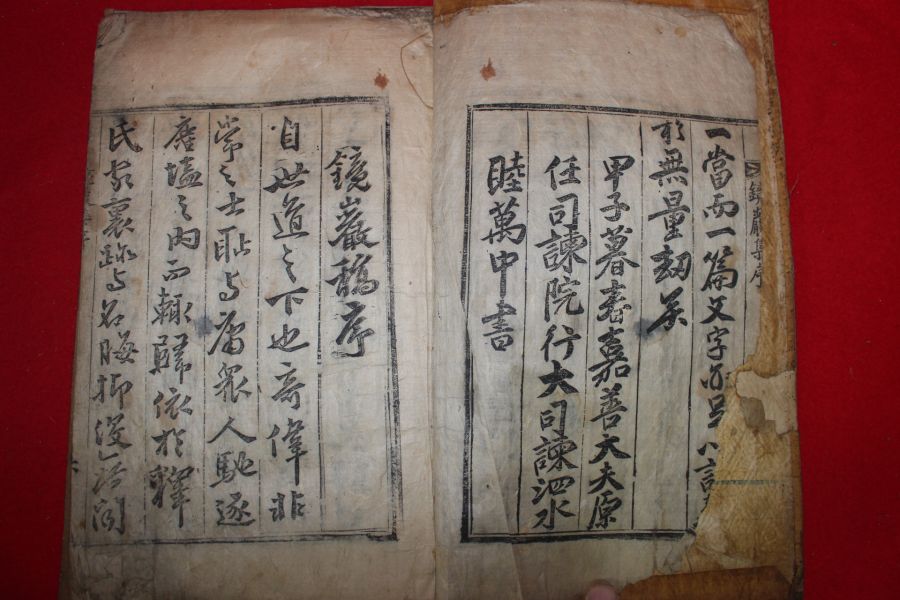 鏡巖集序
一當而一篇文字
於無量劫矣
甲子暮春嘉善大夫原
任司諫院行大司諫泗水
睦萬中書
鏡巖稿序
自世道之下也奇偉非
常之士恥与庸衆人馳逐
塵壒之內而輒歸依於釋
氏家裏跡与名晦抑没